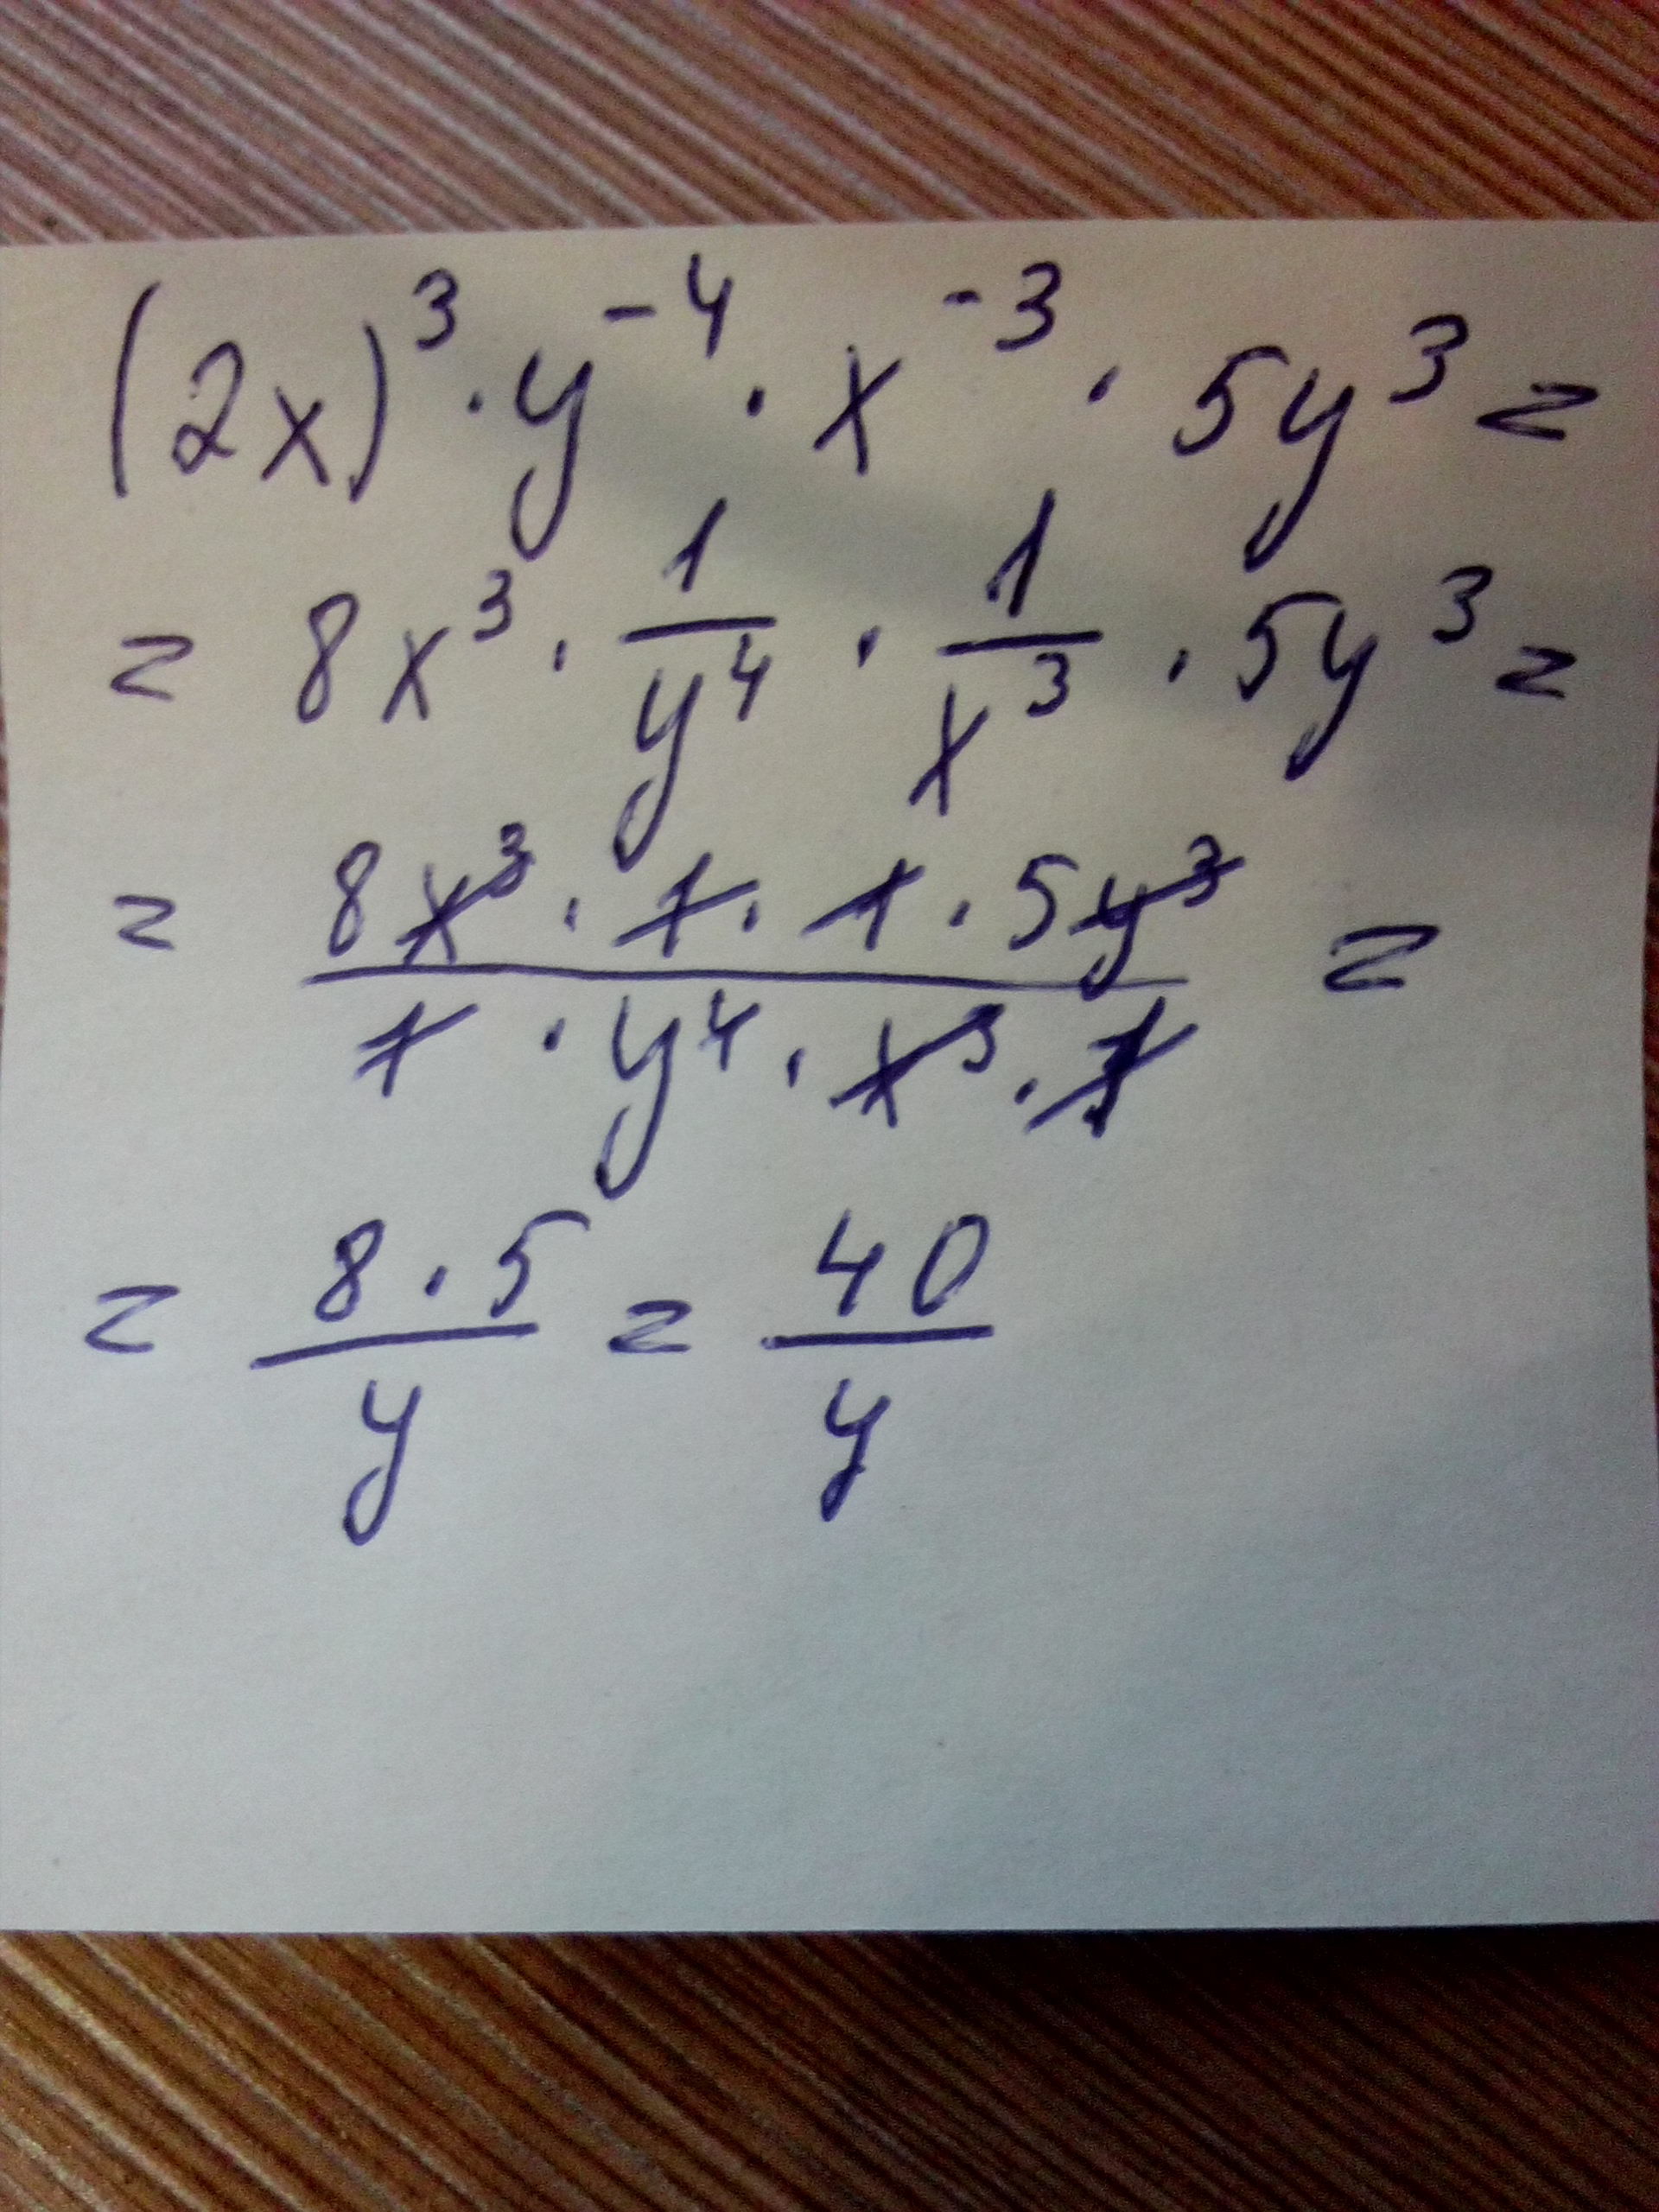 (2x)³ · y⁻⁴ · x⁻³ · 5y³ =
= 8x³ · 1/y⁴ · 1/x³ · 5y³ =
= (8x³ · 1 · 1 · 5y³)/(1 · y⁴ · x³ · 1) =
= (8 · 5)/y = 40/y